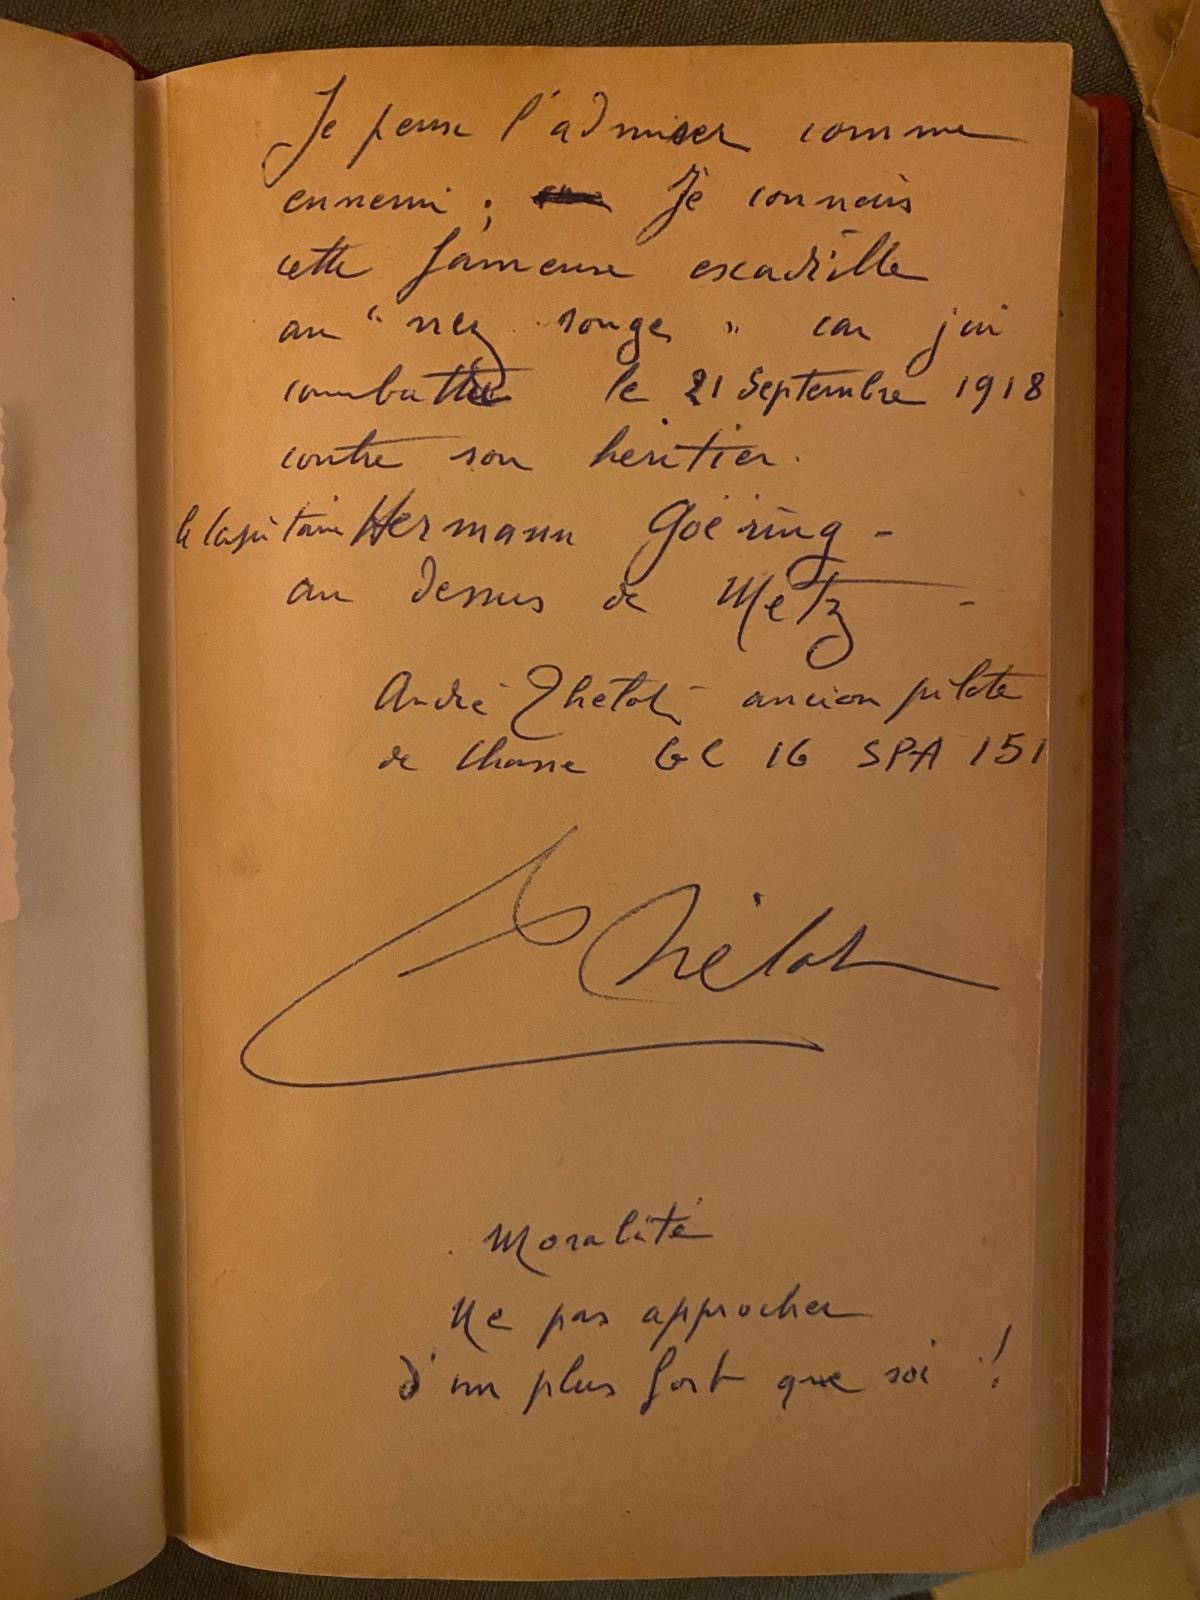 Je pense l'admirer comme
ennemi ; Je connais
cette fameuse escadrille
au "nez rouge" car j'ai
combattu le 21 Septembre 1918
contre son héritier.
le Capitaine Hermann Goëring -
au dessus de Metz -
André ancien pilote
de Chasse GC 16 SPA 151
Moralité
Ne pas approcher
d'un plus fort que soi !